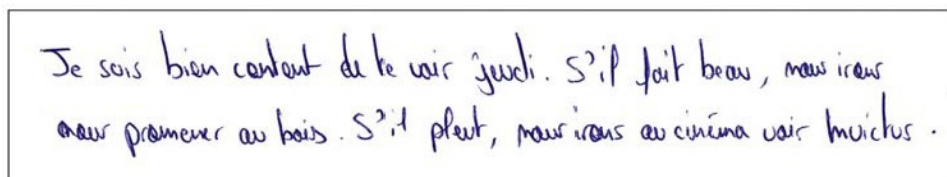 Je suis bien content de te voir jeudi. S'il fait beau, nous irons
nous promener au bois. S'il pleut, nous irons au cinéma voir Invictus.